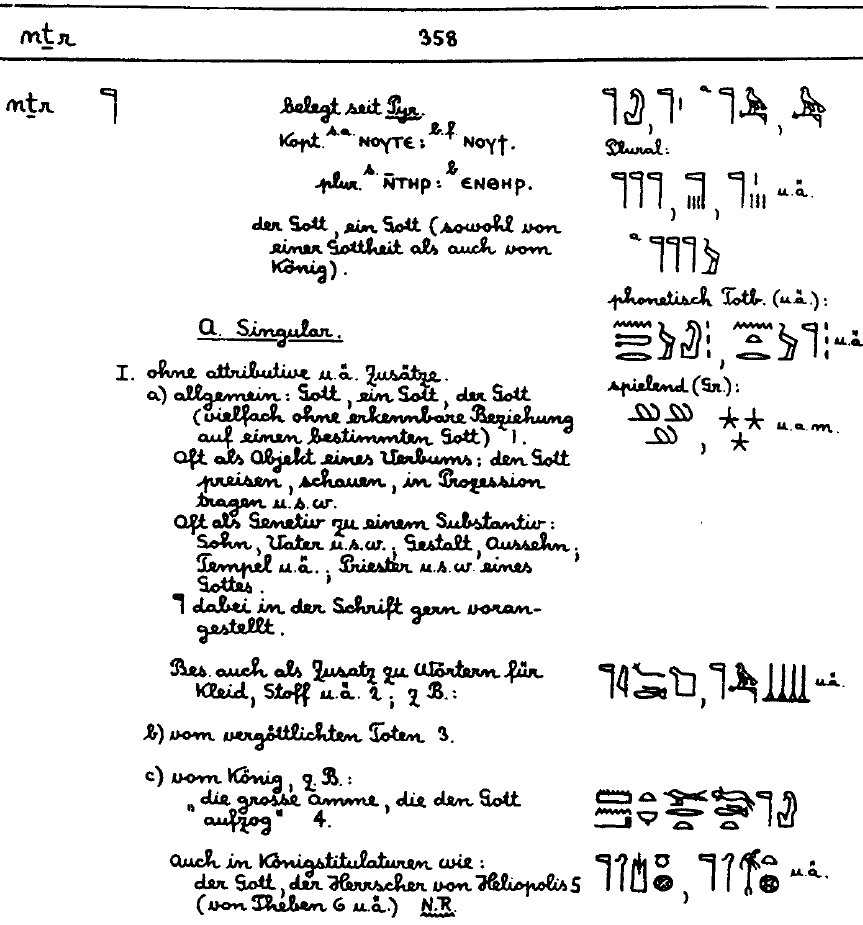 nṯr 358
nṯr 𓊹 belegt seit Pyr.
Kopt. s.a. ⲛⲟⲩⲧⲉ: b.f. ⲛⲟⲩϯ.
plur. s. ⲛ̄ⲧⲏⲣ: b ⲉⲛⲑⲏⲣ.
der Gott, ein Gott (sowohl von
einer Gottheit als auch vom
König).
Plural:
u.ä.
phonetisch Totb. (u.ä.):
u.ä.
spielend (Gr.):
u.a.m.
A. Singular.
I. ohne attributive u.ä. Zusätze.
a) allgemein: Gott, ein Gott, der Gott
(vielfach ohne erkennbare Beziehung
auf einen bestimmten Gott) 1.
Oft als Objekt eines Verbums: den Gott
preisen, schauen, in Prozession
tragen u.s.w.
Oft als Genetiv zu einem Substantiv:
Sohn, Vater u.s.w.; Gestalt, Aussehn;
Tempel u.ä.; Priester u.s.w. eines
Gottes.
𓊹 dabei in der Schrift gern voran-
gestellt.
Bes. auch als Zusatz zu Wörtern für
Kleid, Stoff u.ä. 2; z B.:
u.ä.
b) vom vergöttlichten Toten 3.
c) vom König, z. B.:
„die grosse Amme, die den Gott
aufzog" 4.
Auch in Königstitulaturen wie:
der Gott, der Herrscher von Heliopolis 5
u.ä.
(von Theben 6 u.ä.) N.R.